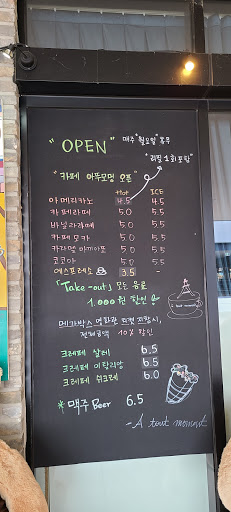 "OPEN" 매주 "월요일" 휴무
"리필 1회 포함"
"카페 아뚜모멍 오픈"
Hot ICE
아메리카노 4.5 4.5
카페라떼 5.0 5.5
바닐라라떼 5.5 5.5
카페모카 5.0 5.5
카라멜 마끼아또 5.0 5.5
코코아 5.0 5.5
에스프레소 3.5 -
「Take-out」 모든 음료
1,000원 할인
메가박스 영화관 티켓 지참시,
전체금액 10% 할인
크레페 살레 6.5
크레페 이탈리앙 6.5
크레페 쉬크레 6.0
* 맥주 Beer 6.5
-A tout moment